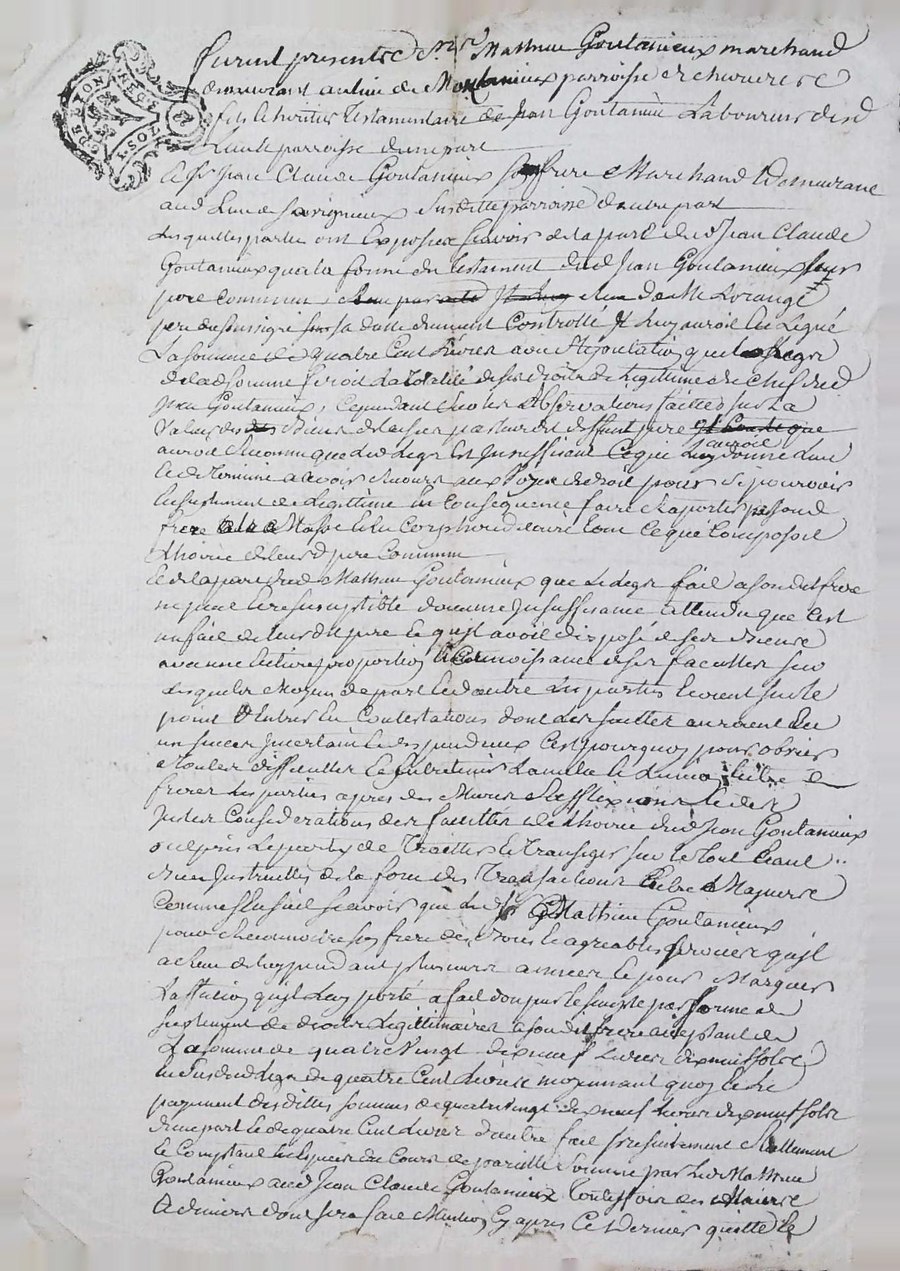 GEN DE LYON
UN SOL
furent presents Sr Mathieu Goutanieux marchand
demeurant au lieu de Montanieux parroisse de
fils et heritier testamentaire de Jean Goutanieu Laboureur dud
Lieu et parroisse d'une part
Et Sr Jean Claude Goutanieux son frere Marchand demeurant
aud Lieu de Savignieux susditte parroisse d'autre part
Lesquelles parties ont exposé scavoir de la part dud Sr Jean Claude
Goutanieux que la forme du testament dud Jean Goutanieux leur
pere commun Lorange
pere du soussigné sous sa datte dument Controllé Il luy auroit eté Legué
La somme de quatre Cent Livres avec stipulation que le Legs
de lad somme seroit La totalité de ses droits de Legitime du Chef dud
Jean Goutanieux, Cependant sur les observations faittes sur La
Valeur des Biens delaissés par leur dit deffunt pere
auroit reconnu que led Legs est Insuffisant Ce qui Luy auroit donné Lieu
de avoir recours aux Voyes de droit pour se pourvoir
en supplement de Legitime en Consequence faire raporter par sond
frere a la Masse et Corps hereditaire tout Ce qui Composoit
L'hoirie de leurd pere Commun
Et de la part dud Mathieu Goutanieux que Le Legs fait a son dit frere
ne peut etre susceptible d'aucune Insuffisance attendu que C'est
un fait de leur dit pere et qu'il avoit disposé de ses Biens
avec une entiere proportion et Connoissance de ses facultés sur
Lesquels Moyens de part et d'autre Les parties etoient sur le
point d'Entrer en Contestations dont Les suittes auroient Eu
un succes Incertain et dispendieux C'est pourquoy pour obvier
a toutes difficultés et Entretenir L'amitié et L'union entre
freres Les parties apres des Mures Reflexions et des
Justes Considerations des facultés de L'hoirie dud Jean Goutanieux
ont pris Le party de Traitter et Transiger sur le tout Etant
Bien Instruittes de la force des Transactions Entre Majeurs
Comme s'ensuit scavoir que led Sr Mathieu Goutanieux
pour reconnoitre son frere des Bons et agreables services qu'il
a rendu pendant plusieurs années et pour Marquer
L'affection qu'il Luy porte a fait don pur et simple par forme de
supplement de droits Legitimaires a son dit frere acceptant de
La somme de quatre vingt dix neuf Livres dix neuf sols
en sus dud Legs de quatre Cent Livres moyennant quoy et le
payement desdittes sommes de quatre vingt dix neuf Livres dix neuf sols
d'une part et de quatre Cent Livres d'autre fait presentement Reellement
et Comptant en Especes du Cours de pareille somme par Led Mathieu
Goutanieux aud Jean Claude Goutanieux
A dont sera fait Mention Cy apres Ce Dernier quitte le